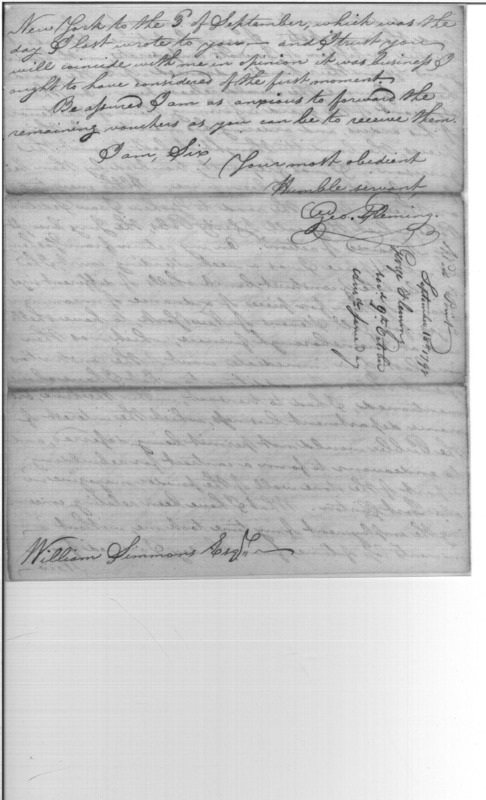 New York to the 3 of September, which was the
day I last wrote to you — and I trust you
will coincide with me in opinion it was business I
ought to have considered of the first moment.
Be assured I am as anxious to forward the
remaining vouchers as you can be to receive them.
I am, Sir,
Your most obedient
Humble servant,
Geo. Fleming.
West Point
September 1798
George Fleming
recd 9th October
ansd same day
William Simmons Esqr.